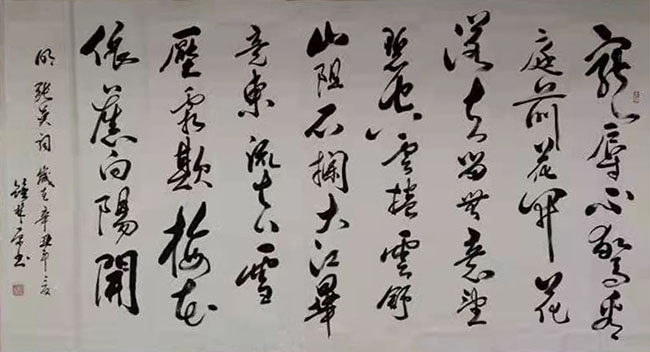 寵辱不驚看
庭前花開花
落去留無意望
碧空雲捲雲舒
山阻石攔大江畢
竟東流去雪
壓霜欺梅花
依舊向陽開
明張詞歲在辛丑年夏
林書